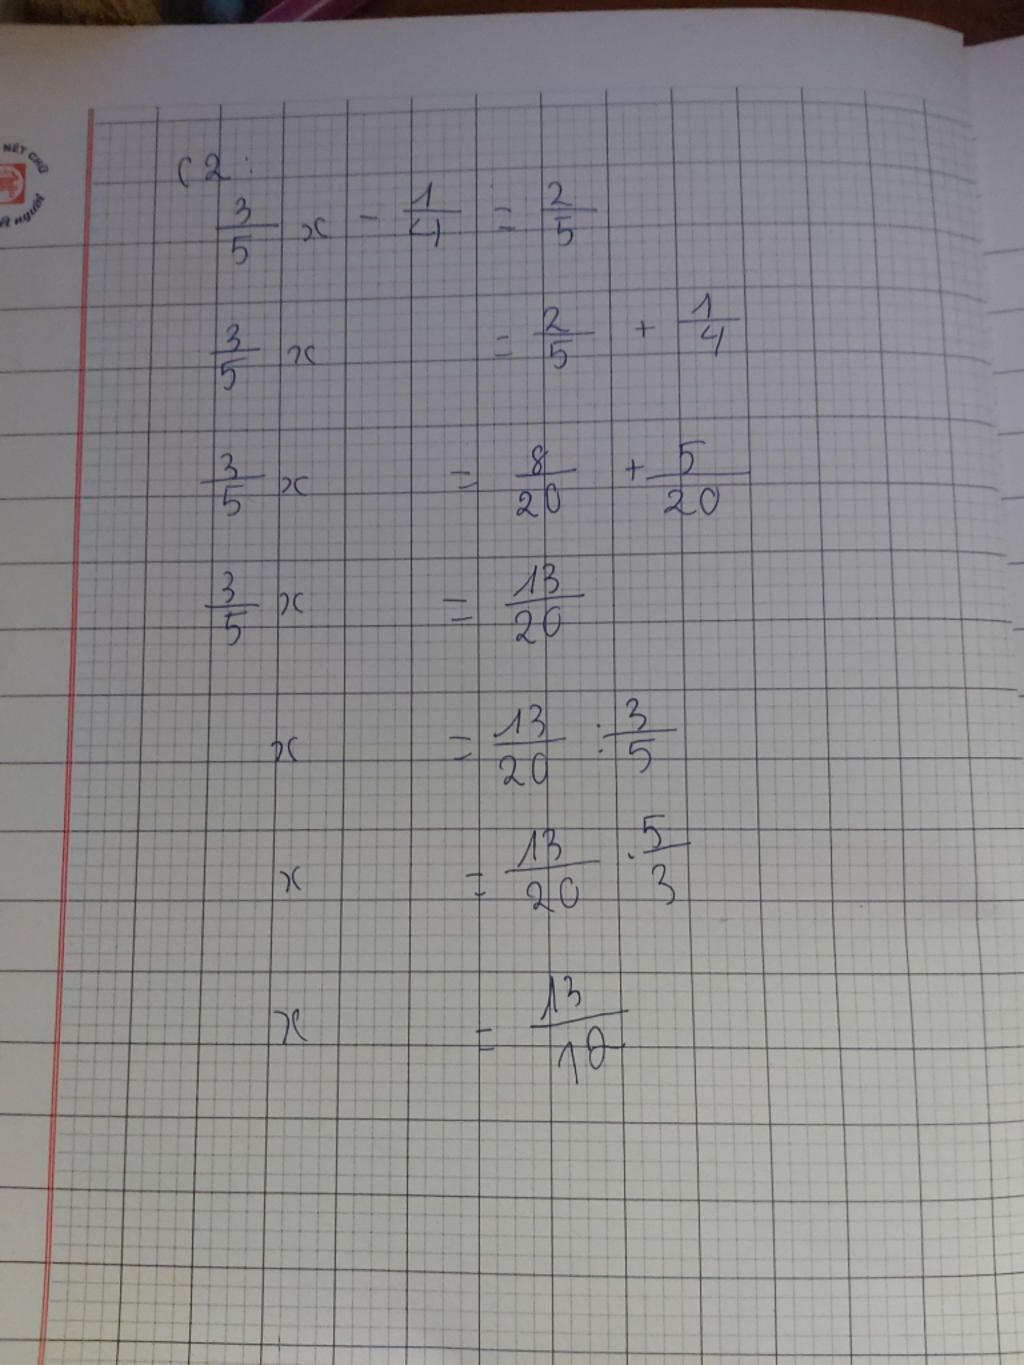 NÉT CHỮ
người
C2:
3/5 x - 1/4 = 2/5
3/5 x = 2/5 + 1/4
3/5 x = 8/20 + 5/20
3/5 x = 13/20
x = 13/20 : 3/5
x = 13/20 . 5/3
x = 13/10